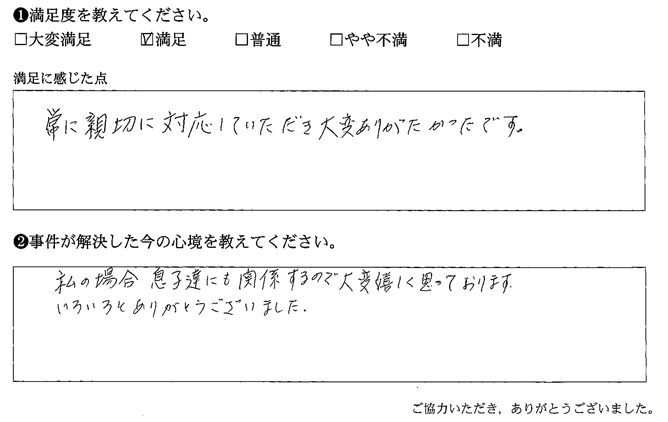 ❶満足度を教えてください。
□大変満足 ☑満足 □普通 □やや不満 □不満
満足に感じた点
常に親切に対応していただき大変ありがたかったです。
❷事件が解決した今の心境を教えてください。
私の場合 息子達にも関係するので大変嬉しく思っております
いろいろとありがとうございました.
ご協力いただき，ありがとうございました。